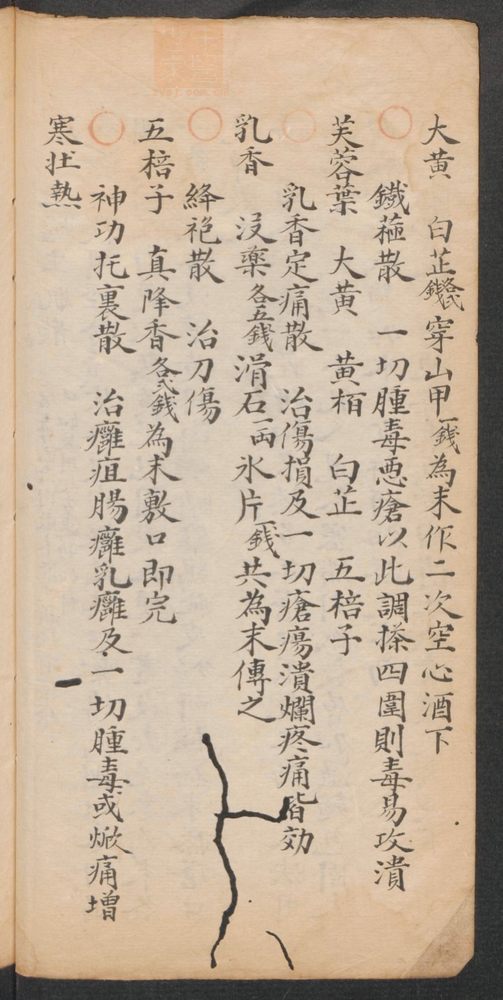 大黃　白芷各弍錢穿山甲一錢為末作二次空心酒下
鐵箍散　一切腫毒惡瘡以此調搽四圍則毒易攻潰
芙蓉葉　大黃　黃栢　白芷　五棓子
乳香定痛散　治傷損及一切瘡瘍潰爛疼痛皆効
乳香　沒藥各五錢滑石一両氷片一錢共為末傅之
絳袍散　治刀傷
五棓子　真降香各弍錢為末敷口即完
神功托裏散　治癰疽腸癰乳癰及一切腫毒或焮痛增
寒壯熱